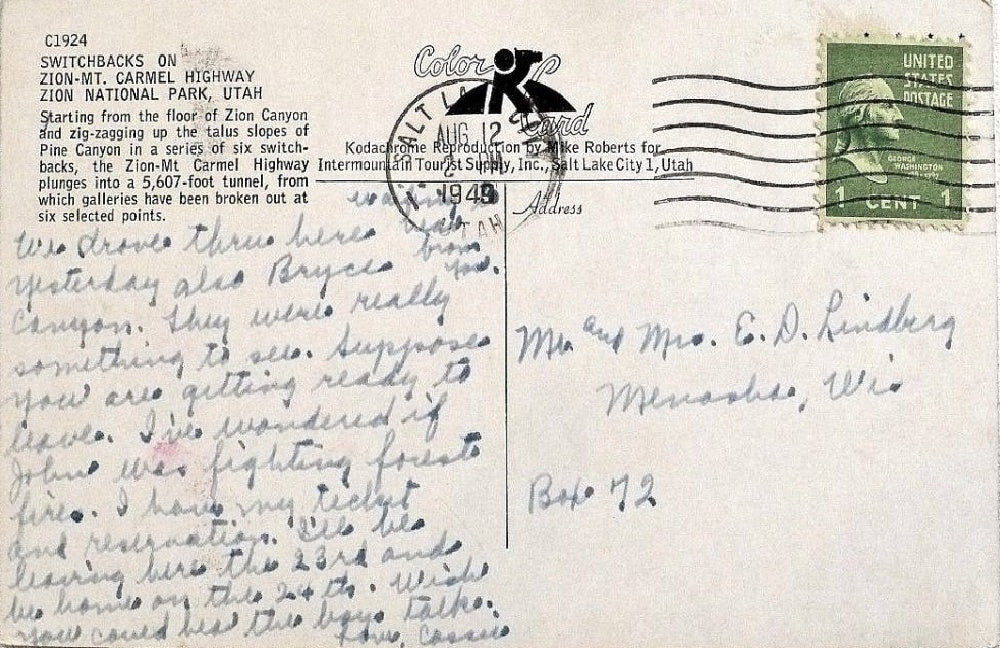 C1924
SWITCHBACKS ON
ZION-MT. CARMEL HIGHWAY
ZION NATIONAL PARK, UTAH
Starting from the floor of Zion Canyon
and zig-zagging up the talus slopes of
Pine Canyon in a series of six switch-
backs, the Zion-Mt Carmel Highway
plunges into a 5,607-foot tunnel, from
which galleries have been broken out at
six selected points.
Color
Card
Kodachrome Reproduction by Mike Roberts for
Intermountain Tourist Supply, Inc., Salt Lake City 1, Utah
SALT LAKE
AUG 12
1949
UTAH
Address
UNITED
STATES
POSTAGE
GEORGE
WASHINGTON
1 CENT 1
We drove thru here
yesterday also Bryce
Canyon. They were really
something to see. Suppose
you are getting ready to
leave. I've wondered if
John was fighting forest
fires. I have my ticket
and reservation. I'll be
leaving here the 23rd and
be home on the 24th. Wish
you could hear the boys talk.
Love, Cassie
from
you.
Mr. and Mrs. E. D. Lindberg
Menasha, Wis
Box 72